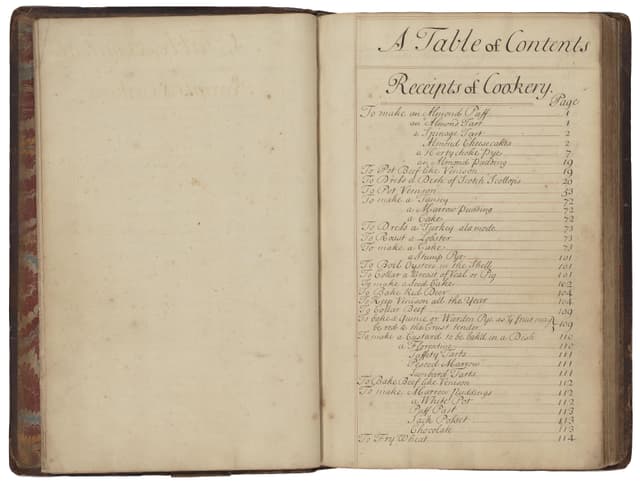 A Table of Contents
Receipts of Cookery.
Page
To make an Almond Puff 1
an Almond Tart 1
a Spinage Tart 2
Almond Cheesecakes 2
a Hartychoke Pye 7
an Almond Pudding 19
To Pot Beef like Venison 19
To Dress a Dish of Scotch Scollops 20
To Pot Venison 53
To make a Tansey 72
a Marrow Pudding 72
a Cake 72
To Dress a Turkey alamode 73
To Roast a Lobster 73
To make a Cake 73
a Stump Pye 101
To Boil Oysters in the Shell 101
To Collar a Breast of Veal or Pig 101
To make a Seed Cake 102
To Bake Red Deer 104
To Keep Venison all the Year 104
To Collar Beef 109
To bake a Quince or Warden Pye, as ye fruit may
be red & the Crust tender 109
To make a Custard to be bak'd in a Dish 110
a Florentine 110
Taffity Tarts 111
Marrow 111
Lumbard Tarts 111
To Bake Beef like Venison 112
To make Marrow Puddings 112
a White Pot 112
Puff Past 113
Sack Posset 113
Chocolate 113
To Fry Wheat 114